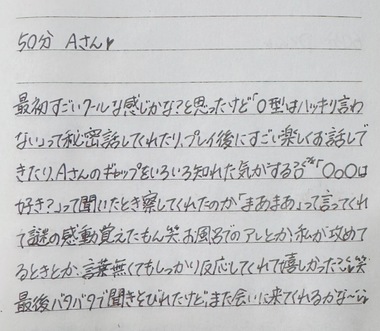 50分 Aさん♥
最初すごいクールな感じかな?と思ったけど「O型はハッキリ言わ
ない」って秘密話してくれたり、プレイ後にすごい楽しくお話しで
きたり、Aさんのギャップをいろいろ知れた気がする「〇〇〇は
好き?」って聞いたとき察してくれたのか「まあまあ」って言ってくれ
て謎の感動覚えたもん笑 お風呂でのアレとか、私が攻めて
るときとか、言葉無くてもしっかり反応してくれて嬉しかった笑
最後バタバタで聞きそびれたけど、また会いに来てくれるかな〜